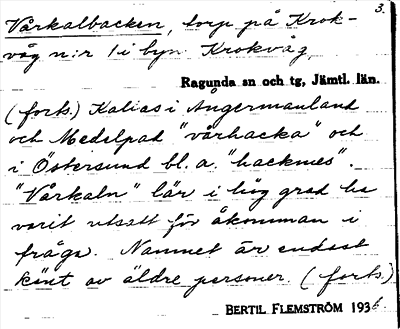 3.
Vårkalbacken, torp på Krok-
våg n:r 1 i byn Krokvåg,
Ragunda sn och tg, Jämtl. län.
(forts.) Kallas i Ångermanland
och Medelpad "vårhacka" och
i Östersund bl.a. "hackmes".
"Vårkaln" lär i hög grad ha
varit utsatt för åkomman i
fråga. Namnet är endast
känt av äldre personer. (forts.)
BERTIL FLEMSTRÖM 1936.